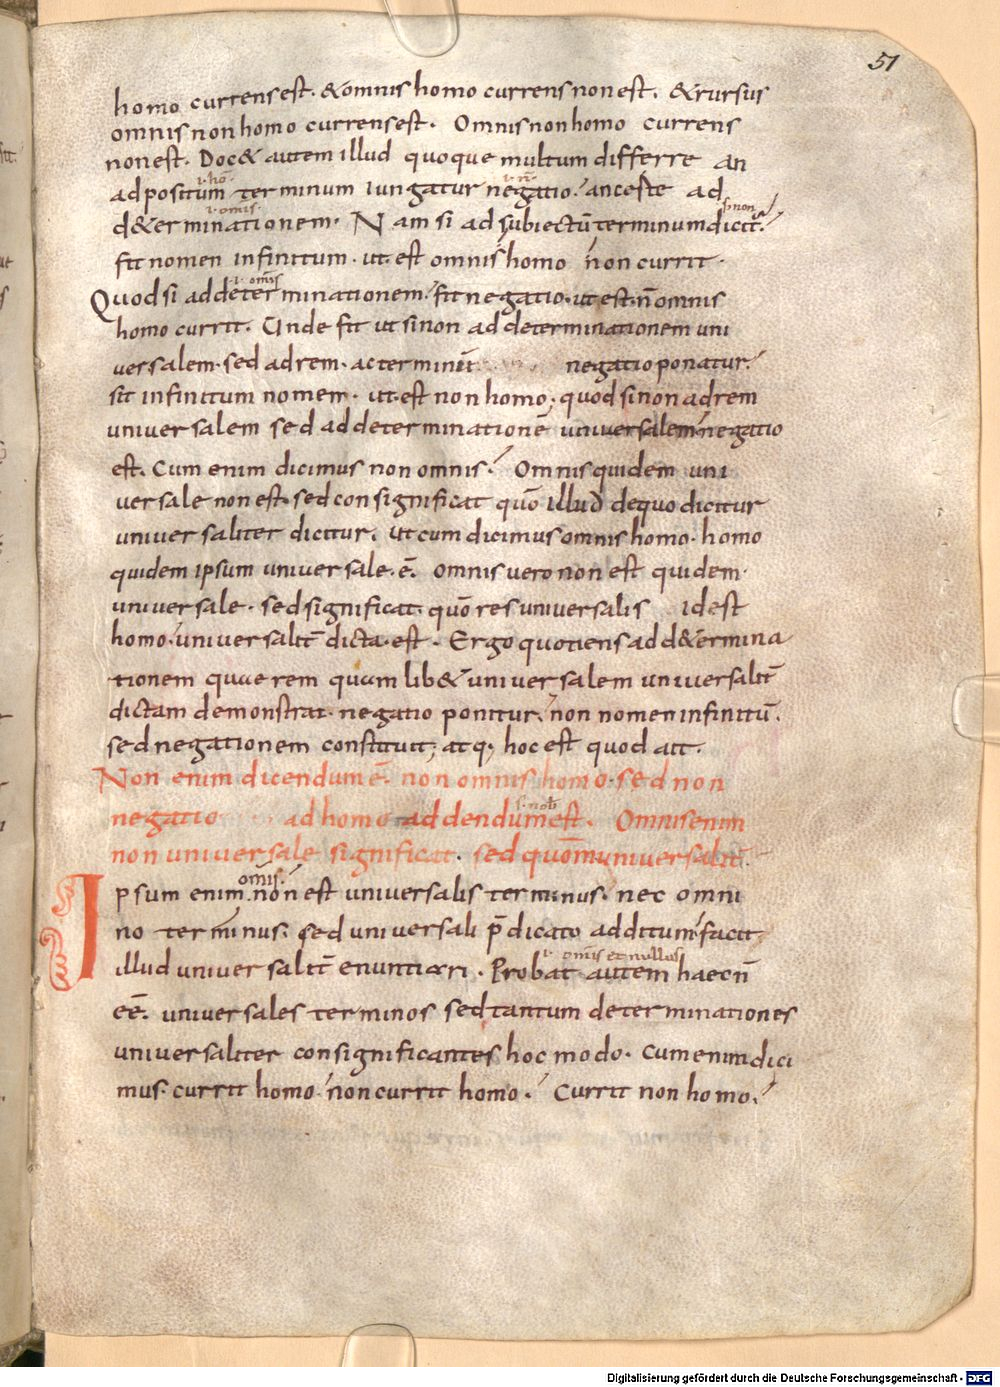 51
homo currens est. & omnis homo currens non est. & rursus
omnis non homo currens est. Omnis non homo currens
non est. Doc& autem illud quoque multum differre an
ad positum terminum iungatur negatio. an ceste ad
d&erminationem. Nam si ad subiectū terminum dicit̄.
fit nomen infinitum. ut est omnis homo non currit.
Quod si ad determinationem. fit negatio. ut est. n̄ omnis
homo currit. Unde fit ut si non ad determinationem uni
uersalem. sed ad rem. ac termin̄ negatio ponatur.
sit infinitum nomen. ut est non homo; quod si non ad rem
uniuersalem sed ad determinationē uniuersalem negatio
est. Cum enim dicimus non omnis. Omnis quidem uni
uersale non est. sed consignificat quō illud de quo dicitur
uniuersaliter dicitur. ut cum dicimus omnis homo. homo
quidem ipsum uniuersale. ē. omnis uero non est quidem
uniuersale. sed significat. quō res uniuersalis id est
homo. uniuersalit̄ dicta. est. Ergo quotiens ad d&ermina
tionem quae rem quam lib& uniuersalem uniuersalit̄
dictam demonstrat. negatio ponitur. non nomen infinitū.
sed negationem constituit; atq; hoc est quod ait.
Non enim dicendum ē. non omnis homo. sed non
negatio ad homo addendum est. Omnis enim
non uniuersale significat. sed quōm uniuersalit̄.
omis.
Ipsum enim non est uniuersalis terminus. nec omni
no terminus. sed uniuersali p̄dicato additum facit
illud uniuersalit̄ enuntiari. Probat autem haec n̄
i. omis et nullus
eē. uniuersales terminos sed tantum determinationes
uniuersaliter consignificantes hoc modo. Cum enim dici
mus. currit homo. non currit homo. Currit non homo.
Digitalisierung gefördert durch die Deutsche Forschungsgemeinschaft - DFG